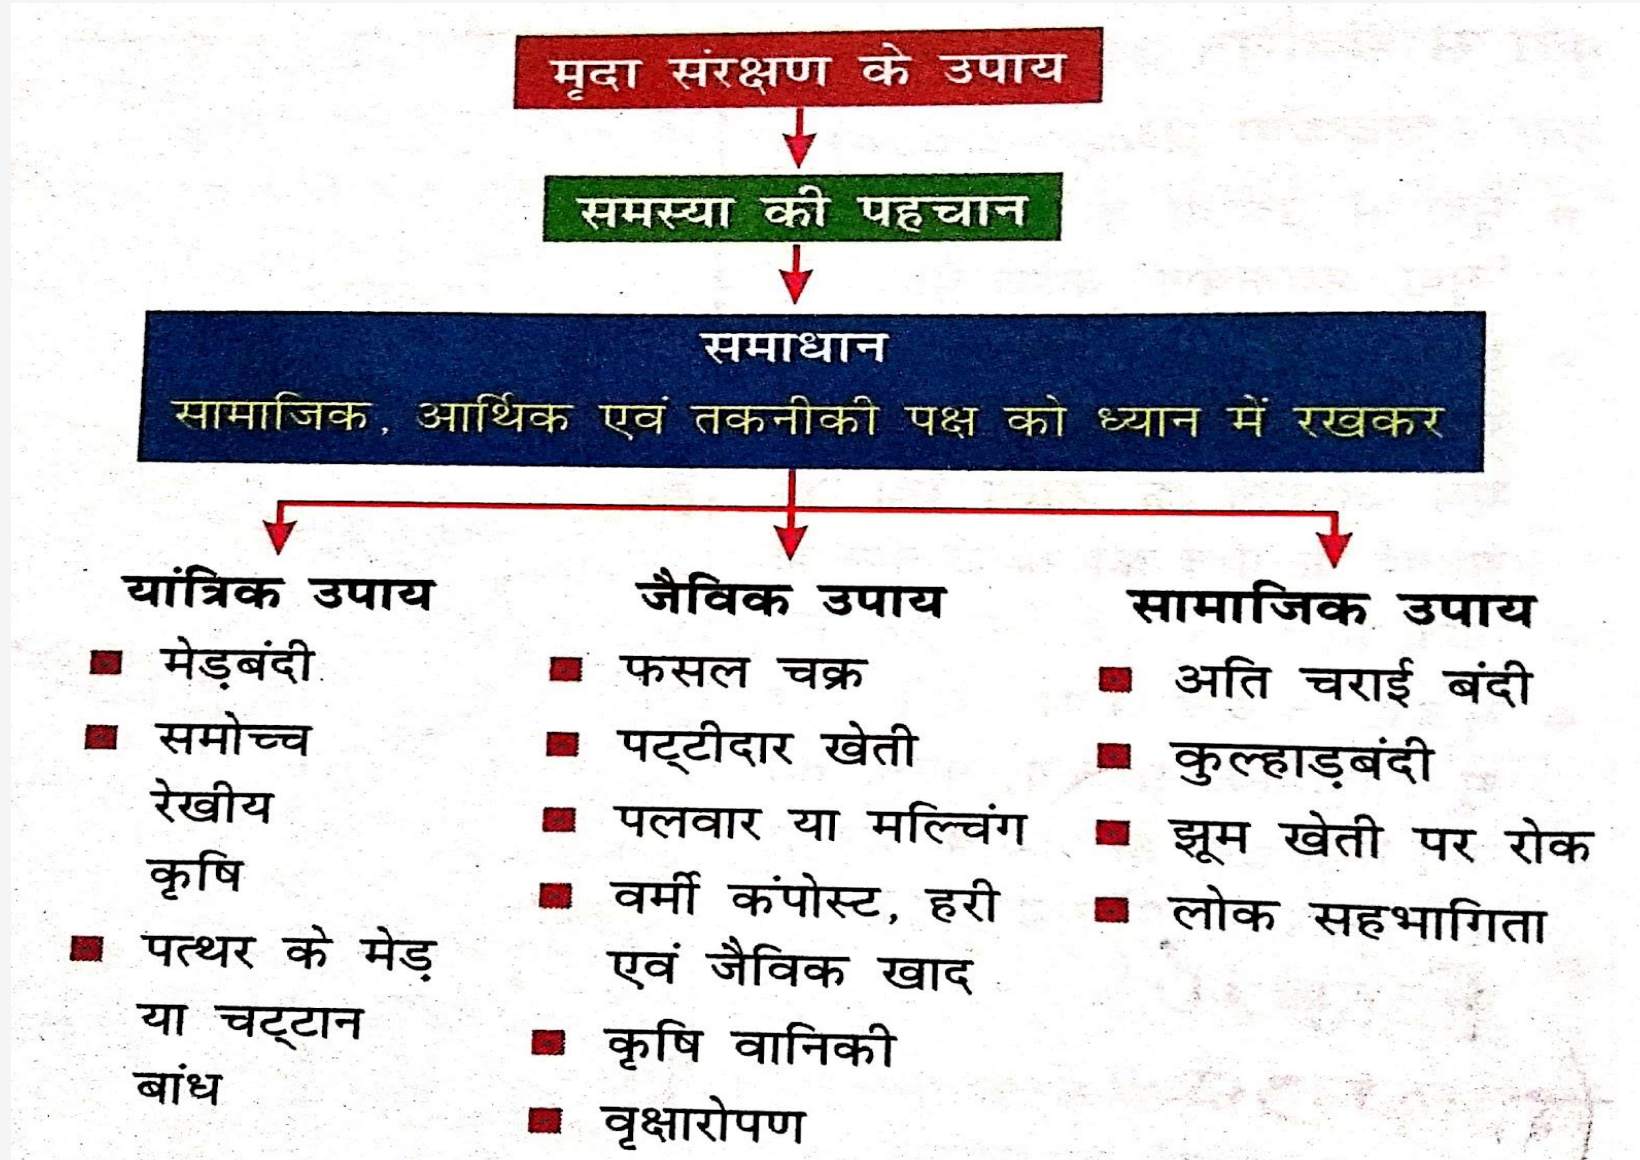 मृदा संरक्षण के उपाय
समस्या की पहचान
समाधान
सामाजिक, आर्थिक एवं तकनीकी पक्ष को ध्यान में रखकर
यांत्रिक उपाय
मेड़बंदी
समोच्च
रेखीय
कृषि
पत्थर के मेड़
या चट्टान
बांध
जैविक उपाय
फसल चक्र
पट्टीदार खेती
पलवार या मल्चिंग
वर्मी कंपोस्ट, हरी
एवं जैविक खाद
कृषि वानिकी
वृक्षारोपण
सामाजिक उपाय
अति चराई बंदी
कुल्हाड़बंदी
झूम खेती पर रोक
लोक सहभागिता